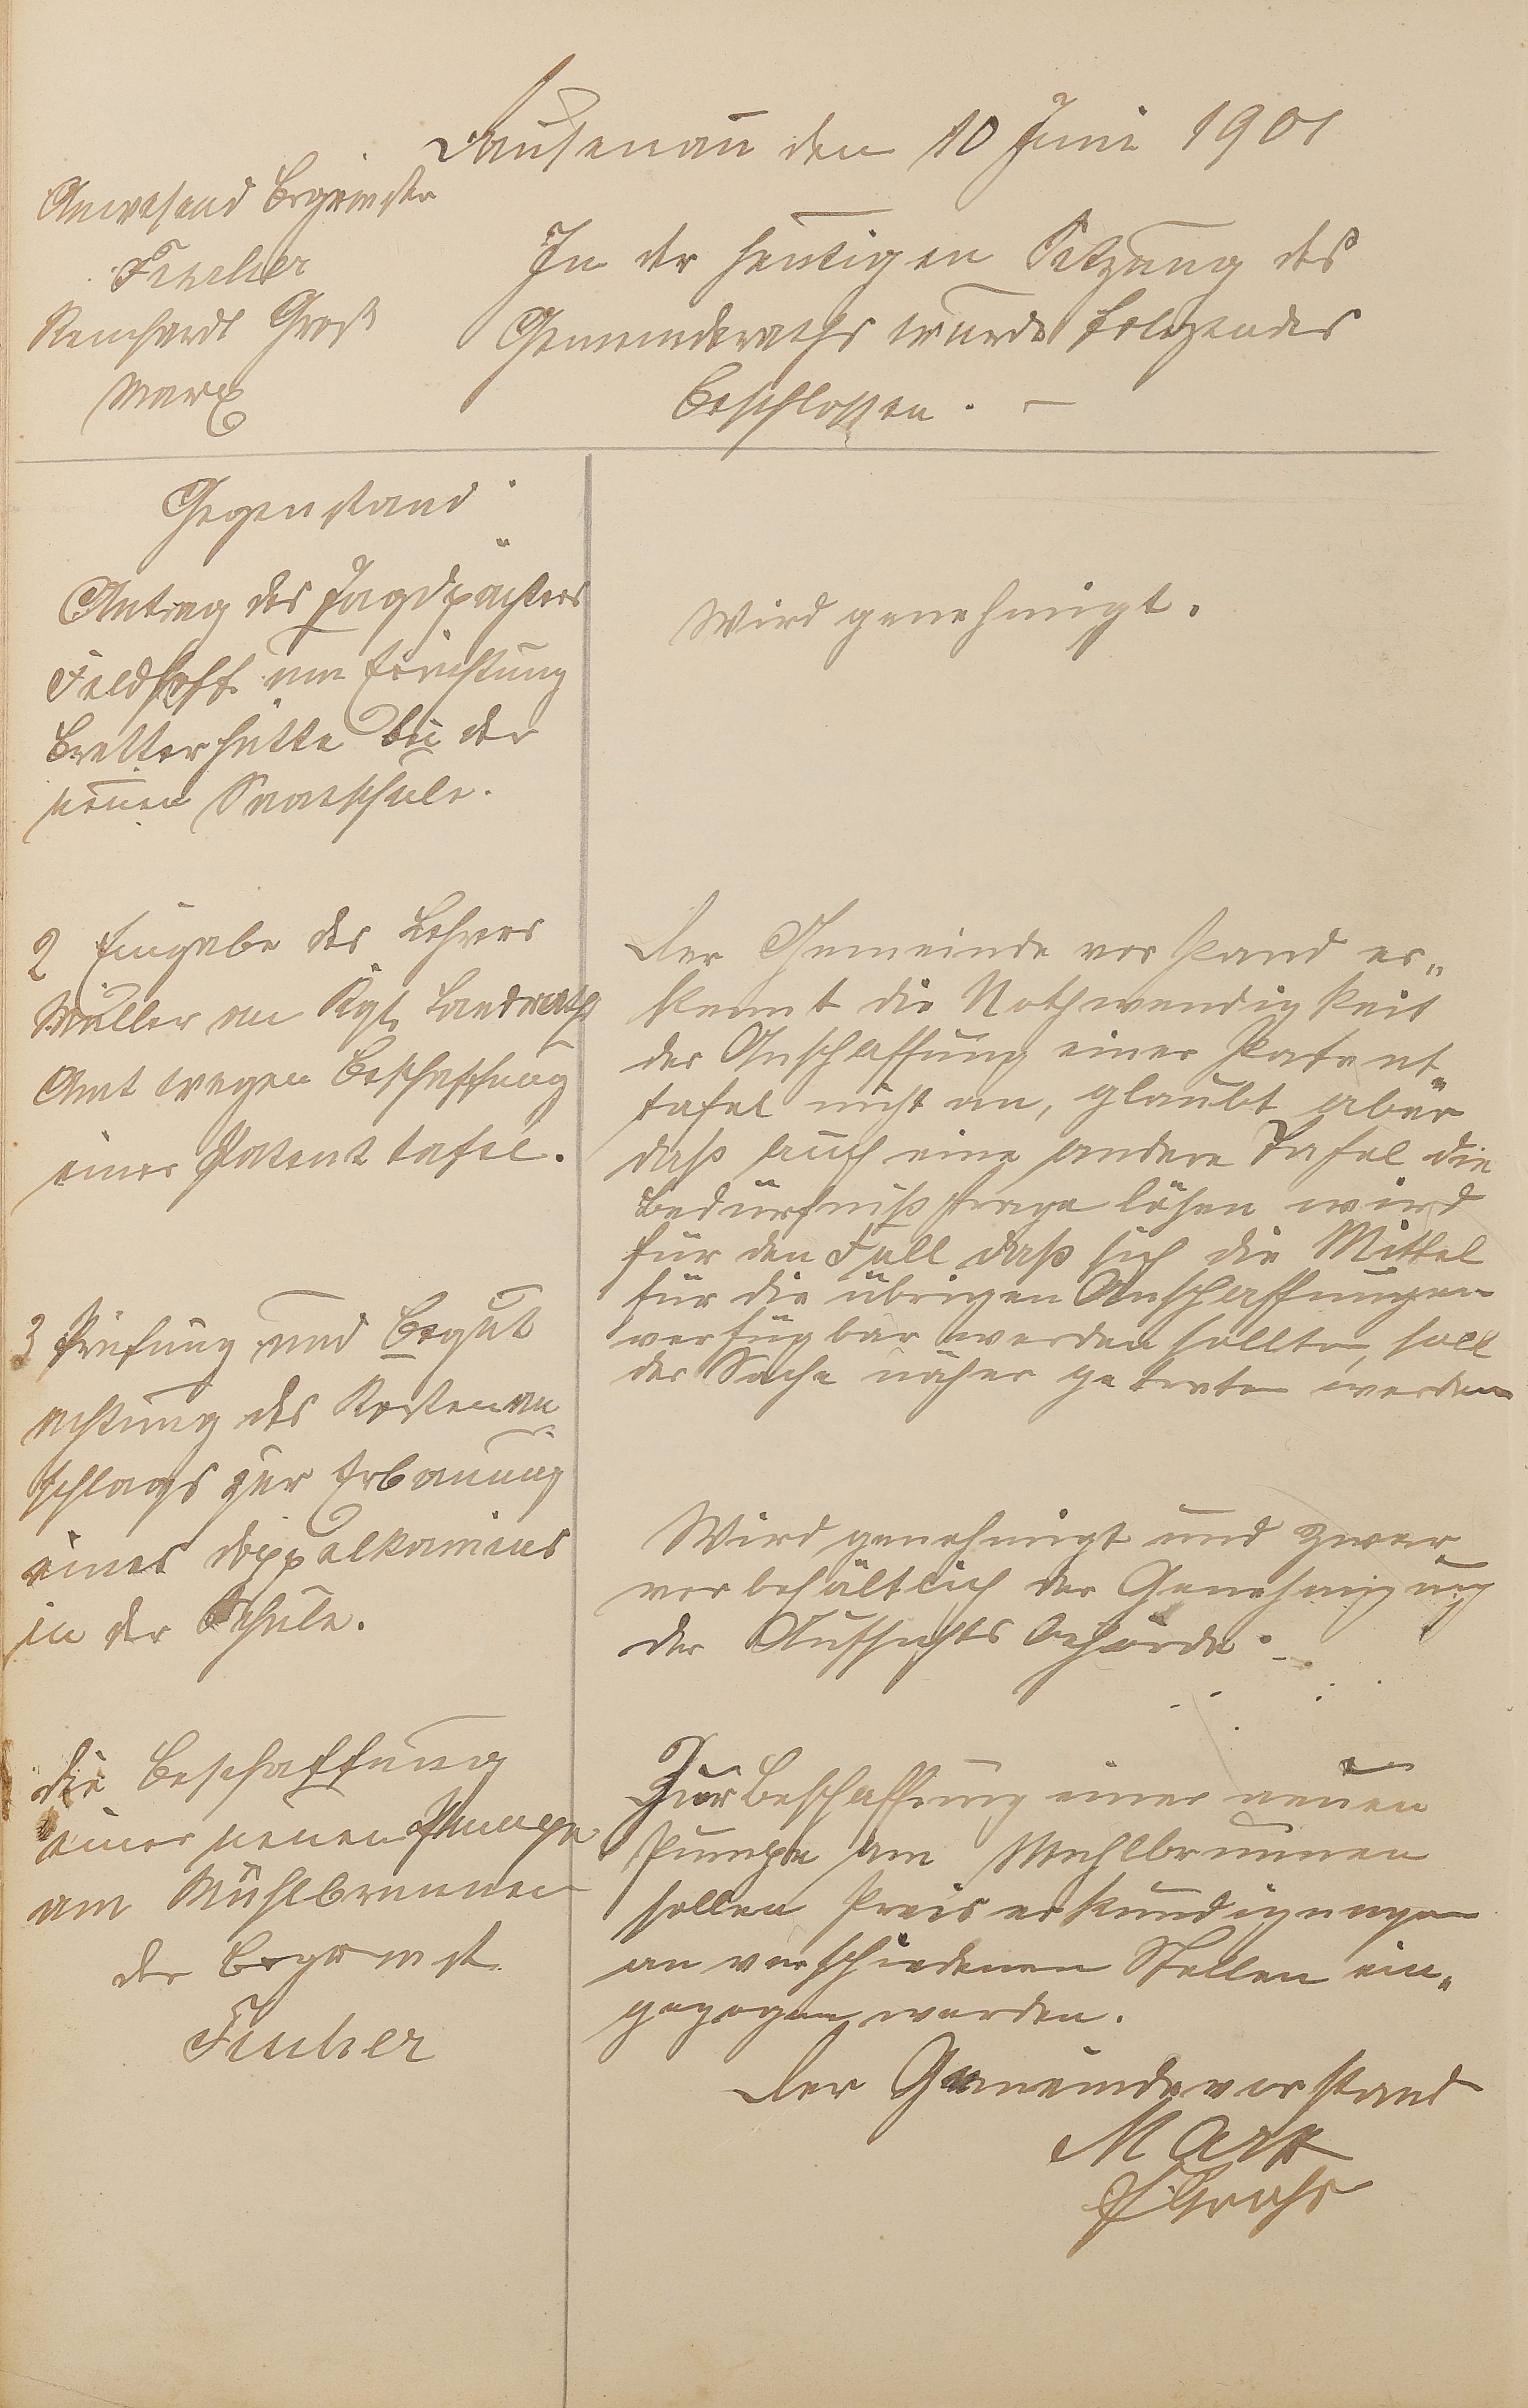 Dausenau den 10 Juni 1901
Anwesend Bürgermstr
Fischer
Reinhardt Groß
Marx
In der heutigen Sitzung des
Gemeinderaths wurde folgendes
beschlossen. —
Gegenstand
Antrag des Jagdpächters
Feldhoff um Errichtung
Bretterhütte bei der
neuen Saatschule.
Wird genehmigt.
2 Eingabe des Lehrers
Müller an Kgl. Landraths
Amt wegen Beschaffung
einer Patent tafel.
Der Gemeinde vorstand er„
kennt die Nothwendigkeit
der Anschaffung einer Patent„
tafel nicht an, glaubt aber
daß auch eine andere Tafel die
Bedürfnißfrage lösen wird
für den Fall daß sich die Mittel
für die übrigen Anschaffungen
verfügbar werden sollten, soll
der Sache näher getreten werden
3 Prüfung und Begut
achtung des Kostenan
schlags zur Erbauung
eines Doppelkamins
in der Schule.
Wird genehmigt und zwar
vorbehältlich der Genehmigung
der Aufsichts behörde.
die Beschaffung
einer neuen Pumpe
am Mühlbrunnen
der Bürgermst.
Fischer
Zur Beschaffung einer neuen
Pumpe am Mühlbrunnen
sollen Preiserkundigungen
an verschiedenen Stellen ein„
gezogen werden.
Der Gemeindevorstand
Marx
Groß